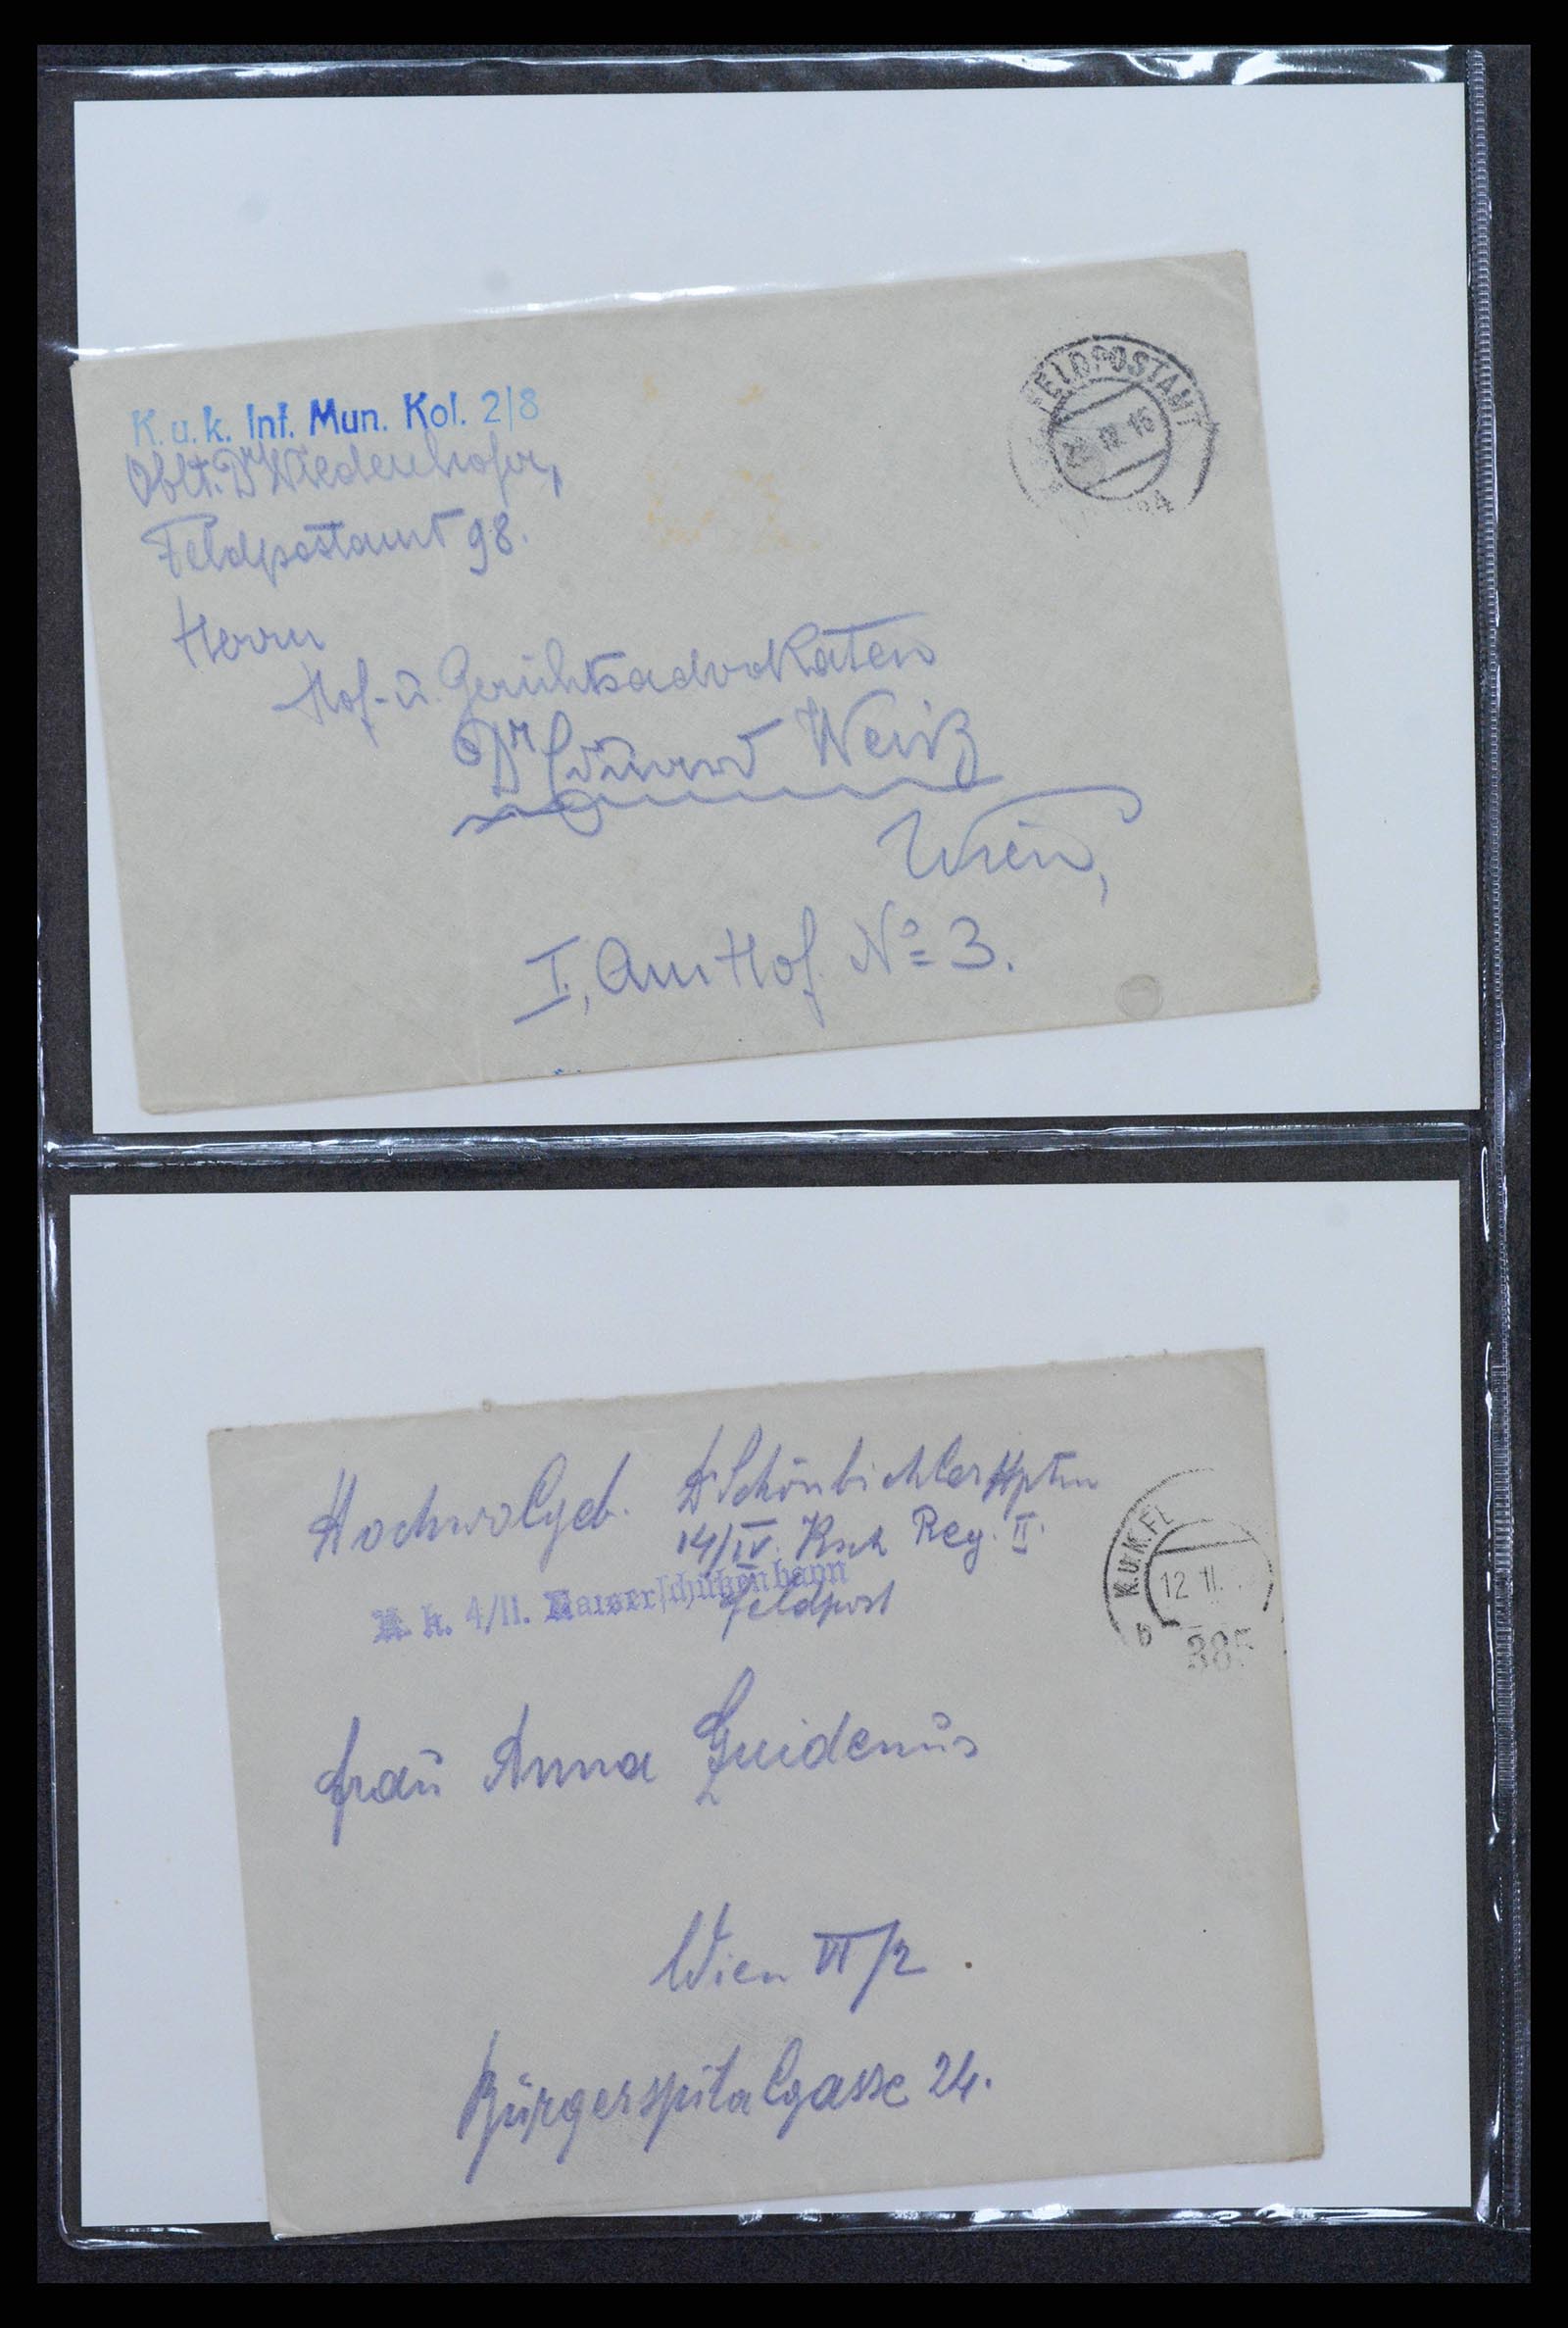 K. u. k. Inf. Mun. Kol. 2/8
Oblt. Dr Wiedenhofer,
Feldpostamt 98.
FELDPOSTAMT
Herrn
Hof- u. Gerichtsadvokaten
Dr Eduard Weiß
Wien,
I., Am Hof No 3.
Hochwolgeb. Dr Schönbichler Hptm
14/IV. Reg. II.
K. k. 4/II. Kaiserschützenbaon
Feldpost
K.u.K.F
12 II.
b 385
Frau Anna
Wien VI/2.
Bürgerspitalgasse 24.